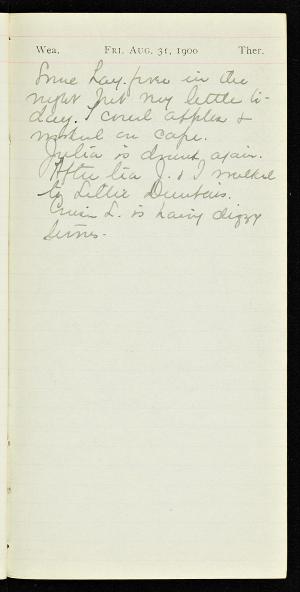 Wea. FRI. AUG. 31, 1900 Ther.
Some hay fever in the
night but very little to-
day. I cored apples &
worked on cape.
Julia is drunk again.
After tea J. & I walked
to Lillie
L. is having dizzy
times.